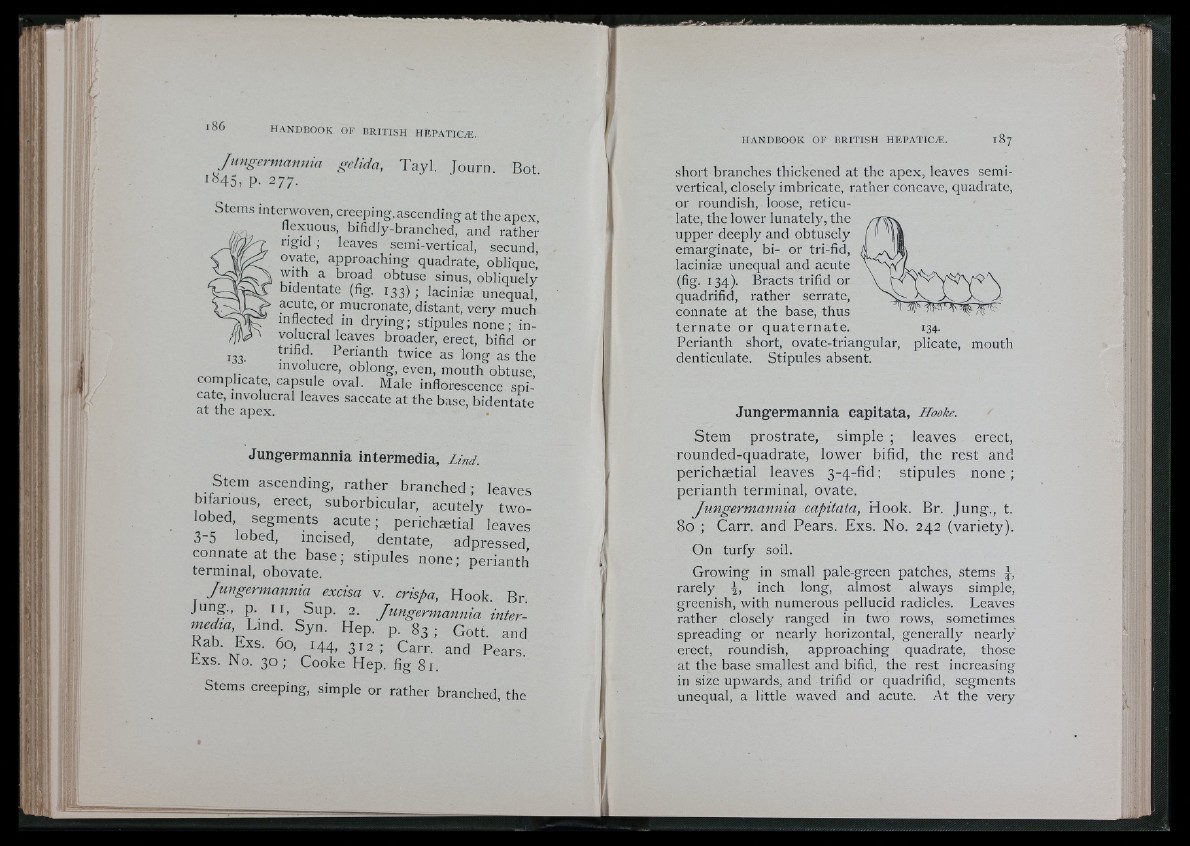 186 HANDBOOK OF BRITISH HEPATICÆ.
Jungermannia gelida, Tayl. Journ. Bot.
1845, p. 277.
Stems interwoven, creeping, ascending at the apex,
flexuous, bifidly-branched, and rather
rigid ; leaves semi-vertical, secund,
ovate, approaching quadrate, oblique,
with a broad obtuse sinus, obliquely
bidentate (fig. 133) ; laciniæ unequal,
acute, or mucronate, distant, very much
inflected in drying; stipules none ; in-
volucral leaves broader, erect, bifid or
trifid. Perianth twice as long as the
133.
involucre, oblong, even, mouth obtuse,
complicate, capsule oval. Male inflorescence spi-
cate, involucral leaves saccate at the base, bidentate
at the apex.
Jungermannia intermedia, Lind.
Stem ascending, rather branched ; leaves
bifarious, erect, suborbicular, acutely two-
lobed, segments acute ; perichætial leaves
3-5 lobed, incised, dentate, adpressed,
connate at the base ; stipules none ; perianth
terminal, obovate.
Jungermannia excisa v. crispa, Hook. Br.
Jung., p. 11, Sup. 2. Jungermannia inter-
media, Lind. Syn. Hep. p. 83 ; Gott. and
Rab. Exs. 60, 144, 312 ; Carr. and Pears.
Exs. No. 30 ; Cooke Hep. fig 81.
Stems creeping, simple or rather branched, the
HANDBOOK OF BRITISH HEPATICÆ. 187
short branches thickened at the apex, leaves semi-
vertical, closely imbricate, rather concave, quadrate,
or roundish, loose, reticu-
late, the lower lunately, the
upper deeply and obtusely
emarginate, bi- or tri-fid,
laciniæ unequal and acute
(fig. 134). Bracts trifid or
quadrifid, rather serrate,
connate at the base, thus
ternate or quaternate.
134.
Perianth short, ovate-triangular, plicate, mouth
denticulate. Stipules absent.
Jungermannia capitata, Hooke.
Stem prostrate, simple ; leaves erect,
rounded-quadrate, lower bifid, the rest and
perichætial leaves 3-4-fid ; stipules none ;
perianth terminal, ovate.
Jungermannia capitata, Hook. Br. Jung., t.
80 ; Carr. and Pears. Exs. No. 242 (variety).
On turfy soil.
Growing in small pale-green patches, stems ¼,
rarely ½, inch long, almost always simple,
greenish, with numerous pellucid radicles. Leaves
rather closely ranged in two rows, sometimes
spreading or nearly horizontal, generally nearly
erect, roundish, approaching quadrate, those
at the base smallest and bifid, the rest increasing
in size upwards, and trifid or quadrifid, segments
unequal, a little waved and acute. At the very